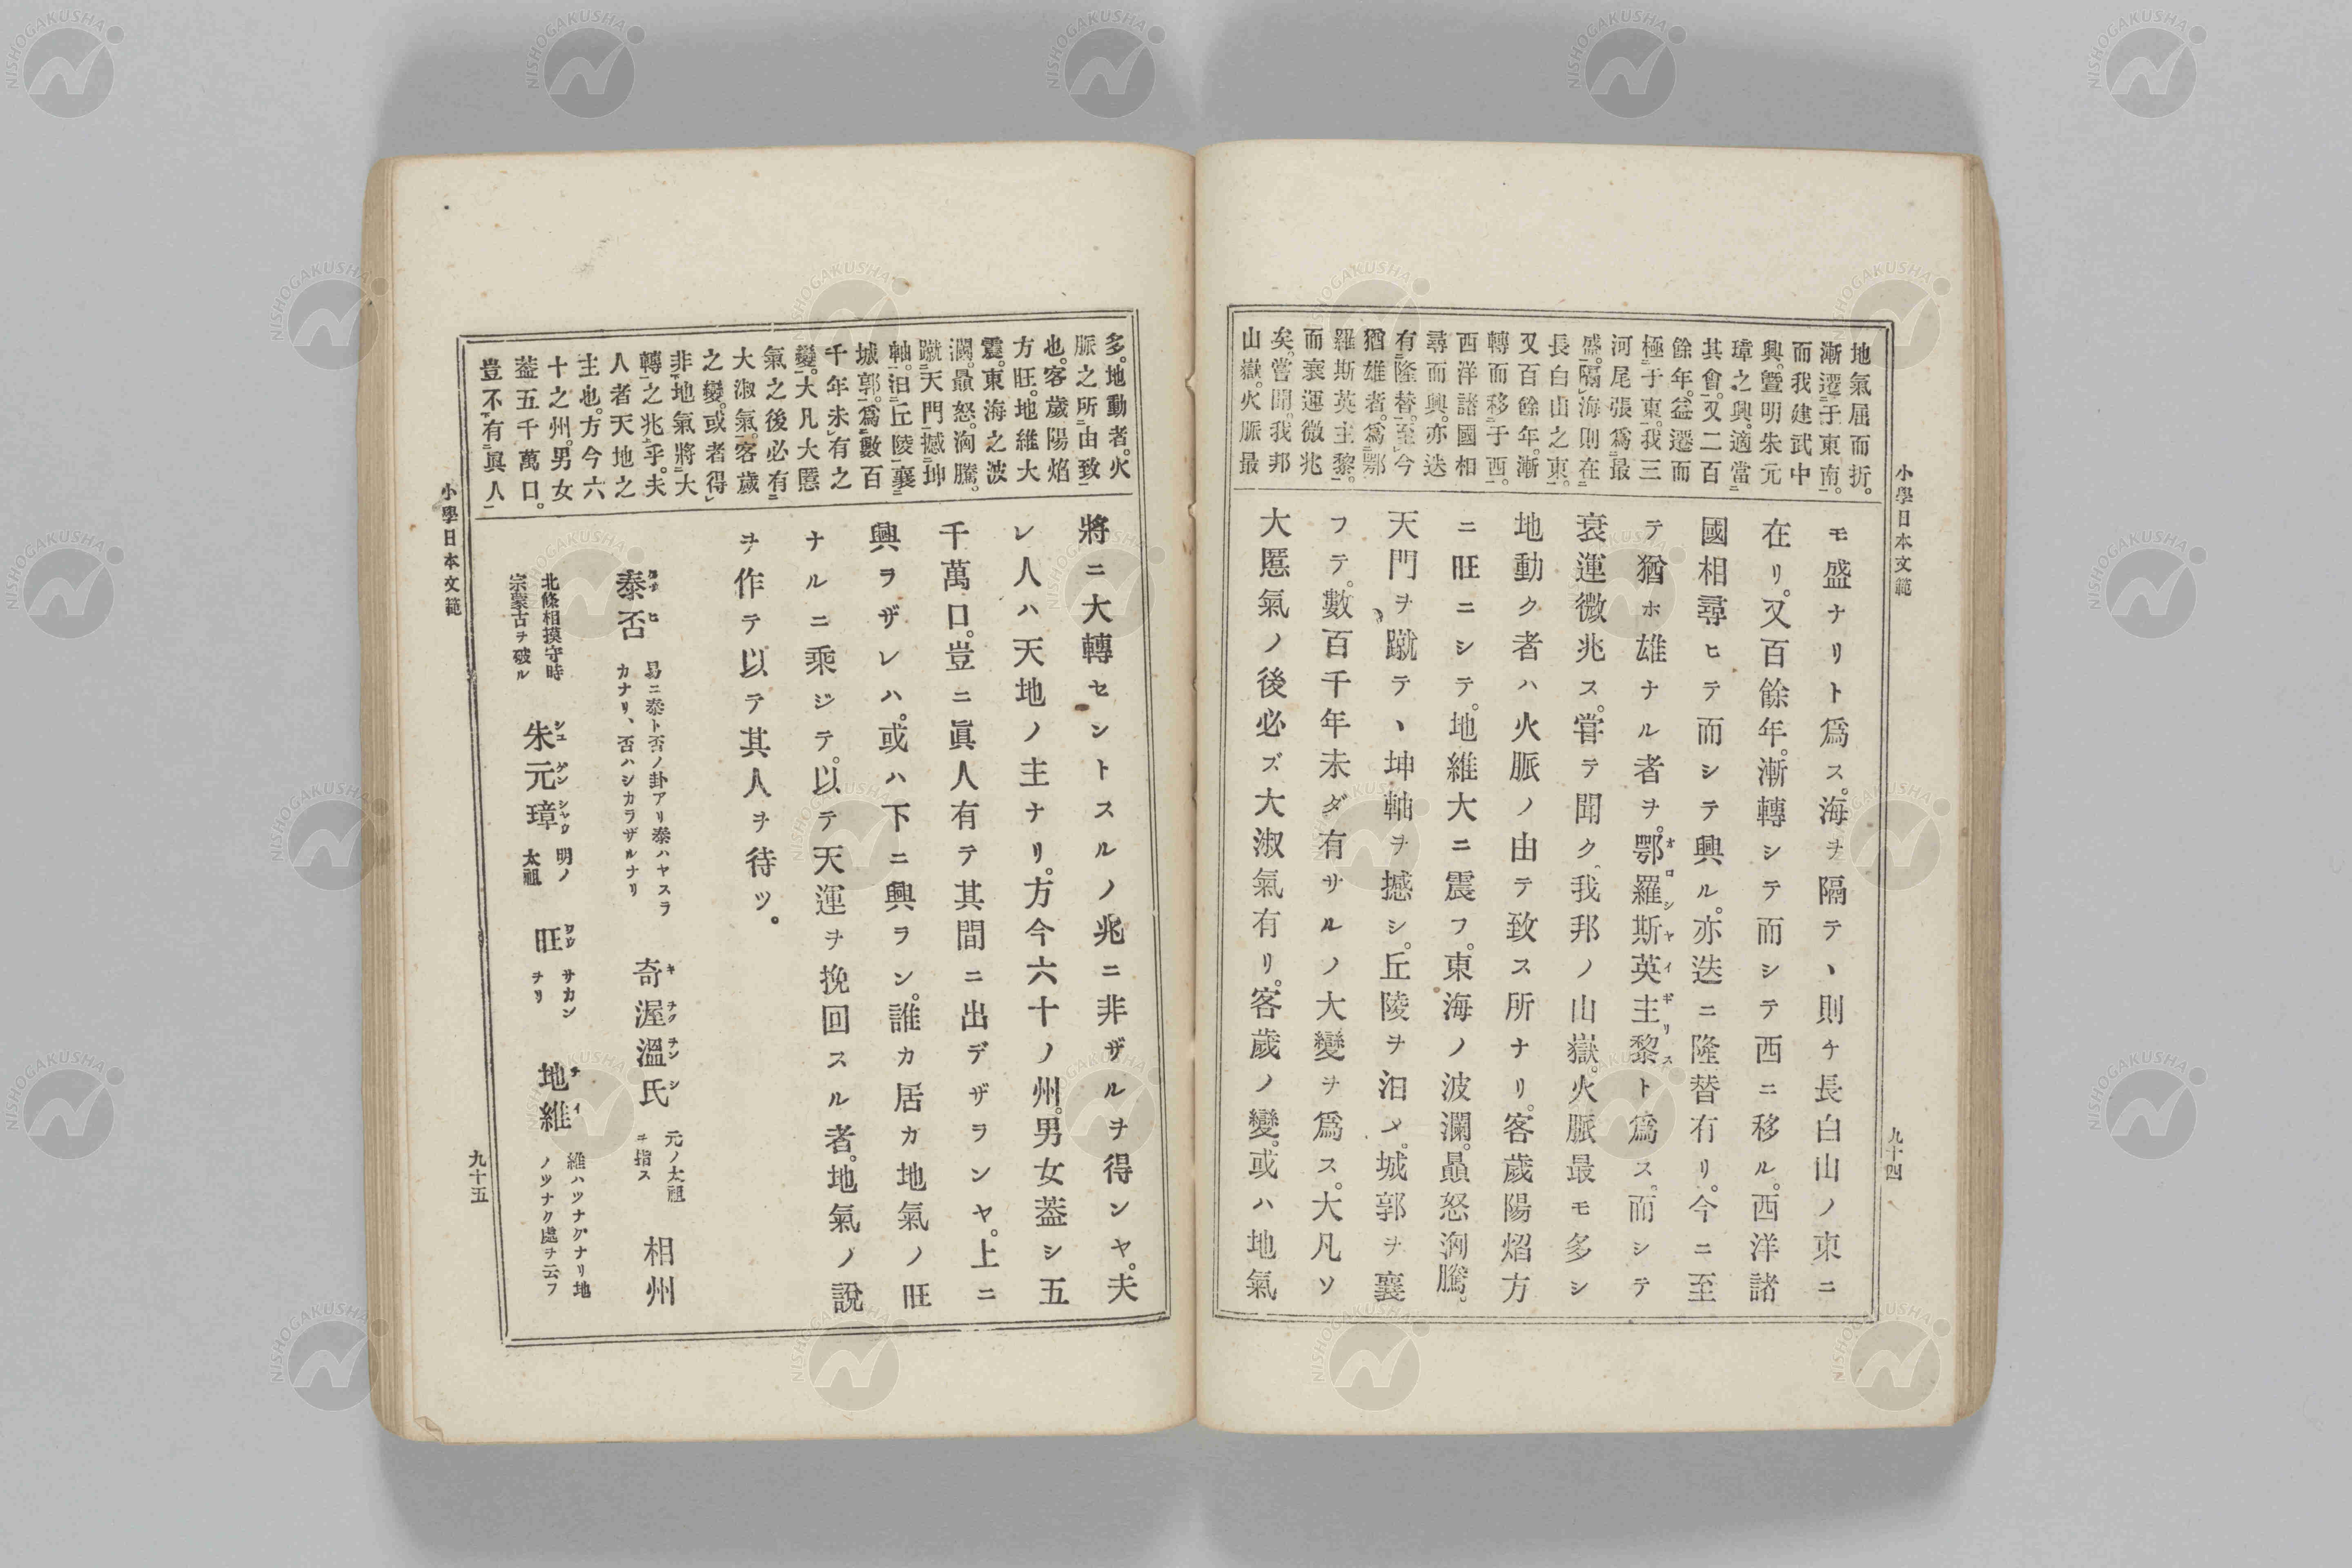 小學日本文範
九十四
地氣屈而折。
漸遷于東南。
而我建武中
興。曁明朱元
璋之興。適當
其會。又二百
餘年。益遷而
極于東。我三
河尾張爲最
盛。隔海則在
長白山之東。
又百餘年。漸
轉而移于西。
西洋諸國相
尋而興。亦迭
有隆替。至今
猶雄者。爲鄂
羅斯英主黎。
而衰運微兆
矣。嘗聞。我邦
山嶽。火脈最
モ盛ナリト爲ス。海ヲ隔テ、則チ長白山ノ東ニ
在リ。又百餘年。漸轉シテ而シテ西ニ移ル。西洋諸
國相尋ヒテ而シテ興ル。亦迭ニ隆替有リ。今ニ至
テ猶ホ雄ナル者ヲ。鄂羅斯英主黎ト爲ス。而シテ
オロシヤイギリス
衰運微兆ス。嘗テ聞ク。我邦ノ山嶽。火脈最モ多シ
地動ク者ハ火脈ノ由テ致ス所ナリ。客歲陽焰方
ニ旺ニシテ。地維大ニ震フ。東海ノ波瀾。贔怒洶騰。
天門ヲ蹴テ、坤軸ヲ撼シ。丘陵ヲ汩メ。城郭ヲ襄
フテ。數百千年未ダ有サルノ大變ヲ爲ス。大凡ソ
大慝氣ノ後必ズ大淑氣有リ。客歲ノ變。或ハ地氣
多。地動者。火
脈之所由致
也。客歲陽焰
方旺。地維大
震。東海之波
瀾。贔怒。洶騰。
蹴天門撼坤
軸。汩丘陵襄
城郭。爲數百
千年未有之
變。大凡大慝
氣之後必有
大淑氣。客歲
之變。或者得
非地氣將大
轉之兆乎。夫
人者天地之
主也。方今六
十之州。男女
蓋五千萬口。
豈不有眞人
將ニ大轉セントスルノ兆ニ非ザルヲ得ンヤ。夫
レ人ハ天地ノ主ナリ。方今六十ノ州。男女蓋シ五
千萬口。豈ニ眞人有テ其間ニ出デザランヤ。上ニ
興ラザレハ。或ハ下ニ興ラン。誰カ居カ地氣ノ旺
ナルニ乘ジテ。以テ天運ヲ挽回スル者。地氣ノ說
ヲ作テ以テ其人ヲ待ツ。
泰否 易ニ泰ト否ノ卦アリ泰ハヤスラ
カナリ、否ハシカラザルナリ
奇渥溫氏 元ノ太祖
ヲ指ス
キヲクヲンシ
相州
北條相摸守時
宗蒙古ヲ破ル
朱元璋 明ノ
太祖
シユゲンシヤウ
旺 サカン
ナリ
ワウ
地維 維ハツナグナリ地
ノツナク處ヲ云フ
チイ
小學日本文範
九十五